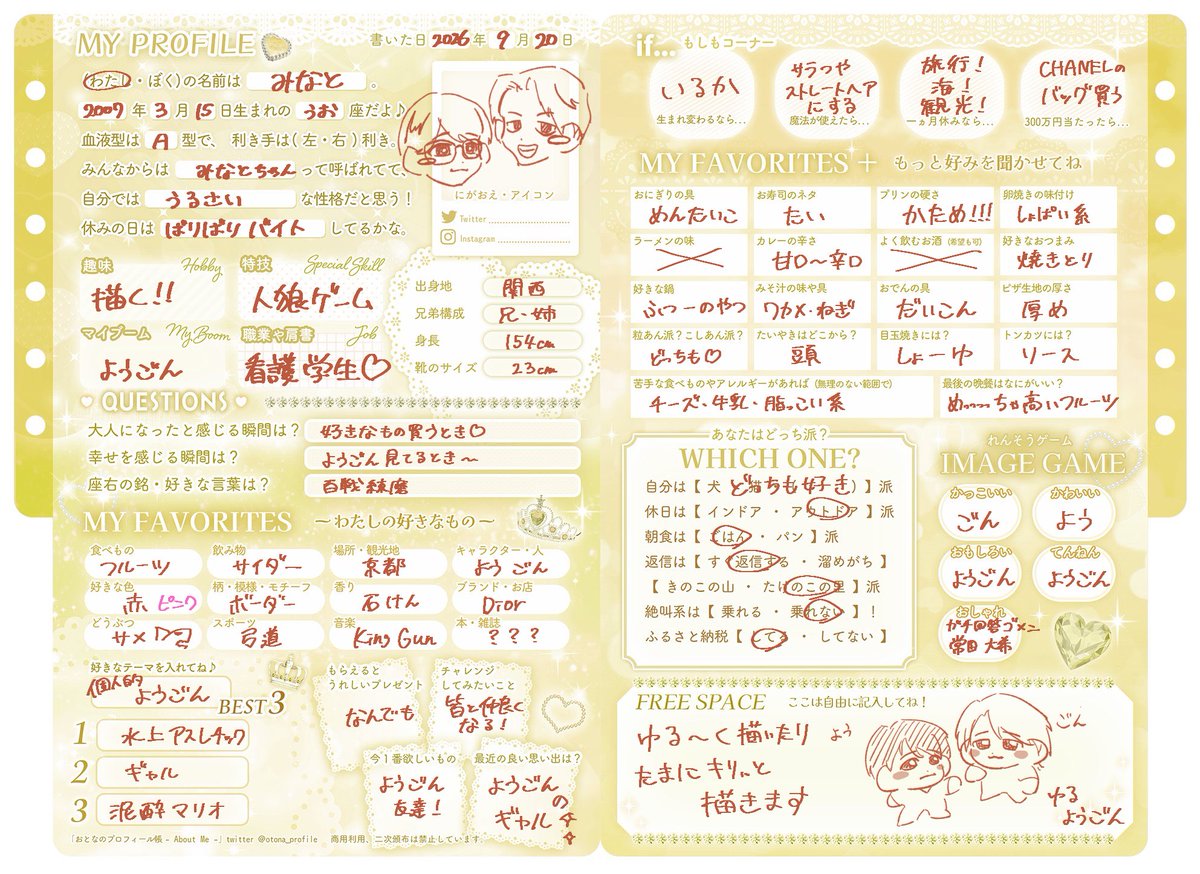 MY PROFILE
書いた日 2026 年 9 月 20 日
(わたし・ぼく)の名前は みなと 。
2007 年 3 月 15 日生まれの うお 座だよ♪
血液型は A 型で、 利き手は(左・右)利き。
みんなからは みなとちゃん って呼ばれてて、
自分では うるさい な性格だと思う！
休みの日は ばりばり バイト してるかな。
にがおえ・アイコン
Twitter
Instagram
趣味 Hobby
描く!!
特技 Special Skill
人狼ゲーム
マイブーム My Boom
ようごん
職業や肩書 Job
看護学生♡
出身地 関西
兄弟構成 兄、姉
身長 154cm
靴のサイズ 23cm
♥ QUESTIONS ♥
大人になったと感じる瞬間は？ 好きなもの買うとき♡
幸せを感じる瞬間は？ ようごん見てるとき〜
座右の銘・好きな言葉は？ 百戦錬磨
MY FAVORITES 〜わたしの好きなもの〜
食べもの フルーツ
飲み物 サイダー
場所・観光地 京都
キャラクター・人 よう ごん
好きな色 赤 ピンク
柄・模様・モチーフ ボーダー
香り 石けん
ブランド・お店 Dior
どうぶつ サメ
スポーツ 弓道
音楽 King Gnu
本・雑誌 ???
好きなテーマを入れてね♪
個人的 ようごん BEST3
1 水上アスレチック
2 ギャル
3 泥酔マリオ
もらえると
うれしいプレゼント
なんでも
チャレンジ
してみたいこと
皆と仲良く
なる！
今1番欲しいもの
ようごん
友達！
最近の良い思い出は？
ようごん
の
ギャル
「おとなのプロフィール帳 - About Me -」twitter @otona_profile 商用利用、二次頒布は禁止しています。
if... もしもコーナー
いるか
生まれ変わるなら...
サラつや
ストレートヘア
にする
魔法が使えたら...
旅行！
海！
観光！
一ヵ月休みなら...
CHANELの
バッグ買う
300万円当たったら...
MY FAVORITES + もっと好みを聞かせてね
おにぎりの具 めんたいこ
お寿司のネタ たい
プリンの硬さ かため!!!
卵焼きの味付け しょぱい系
ラーメンの味
カレーの辛さ 甘口〜辛口
よく飲むお酒 (希望も可)
好きなおつまみ 焼きとり
好きな鍋 ふつーのやつ
みそ汁の味や具 ワカメ・ねぎ
おでんの具 だいこん
ピザ生地の厚さ 厚め
粒あん派？こしあん派？ どっちも♡
たいやきはどこから？ 頭
目玉焼きには？ しょーゆ
トンカツには？ ソース
苦手な食べものやアレルギーがあれば (無理のない範囲で)
チーズ、牛乳、脂っこい系
最後の晩餐はなにがいい？
めっっっちゃ高いフルーツ
あなたはどっち派？
WHICH ONE?
自分は【 犬 どっちも好き 】派
休日は【 インドア ・ アウトドア 】派
朝食は【 ごはん ・ パン 】派
返信は【 すぐ返信する ・ 溜めがち 】
【 きのこの山 ・ たけのこの里 】派
絶叫系は【 乗れる ・ 乗れない 】！
ふるさと納税【 してる ・ してない 】
れんそうゲーム
IMAGE GAME
かっこいい ごん
かわいい よう
おもしろい ようごん
てんねん ようごん
おしゃれ
ガチ回答ゴメン
常田 大希
FREE SPACE ここは自由に記入してね！
ゆる〜く描いたり
たまにキリッと
描きます
よう
ごん
ゆる
ようごん